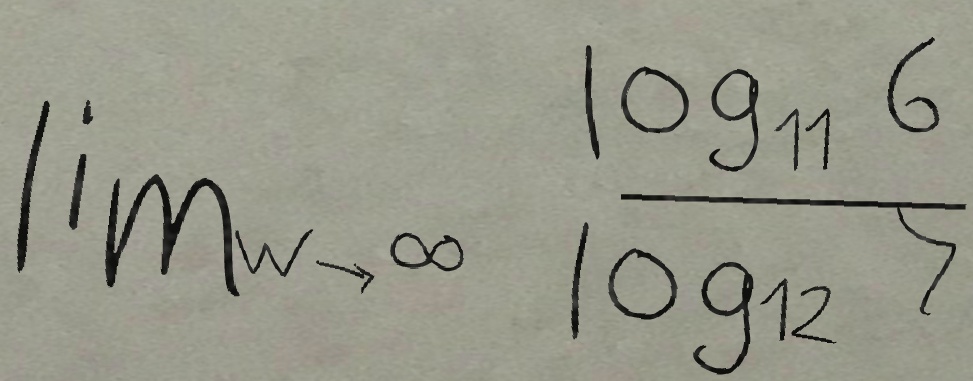 lim w→∞ log₁₁ 6 / log₁₂ 7